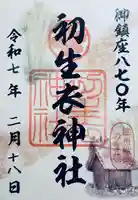 御鎮座八七〇年
初生衣神社
令和七年 二月十八日